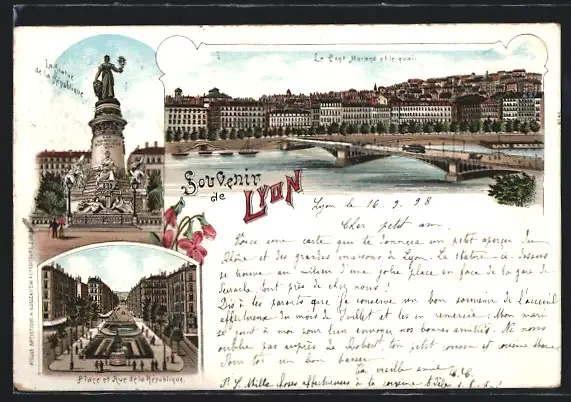 La Statue
de la République
Le Pont Morand et le quai.
Souvenir
de
LYON
Lyon le 16. 9. 98
Cher petit ami,
Voici une carte que te donnera un petit aperçu du
Rhône et des grandes maisons de Lyon. La statue ci-dessus
se trouve au milieu d'une jolie place en face de la gare de
Perrache tout près de chez nous!
Dis à tes parents que je conserve un bon souvenir de l'accueil
affectueux du mois de Juillet et les en remercie; Mon mari
se joint à moi pour leur envoyer nos bonnes amitiés. Ne nous
oublie pas auprès de Robert, ton petit cousin et cousine
Pour toi un bon baiser
Ta vieille amie
P. S. Mille choses affectueuses à la cousine
Place et Rue de la République.